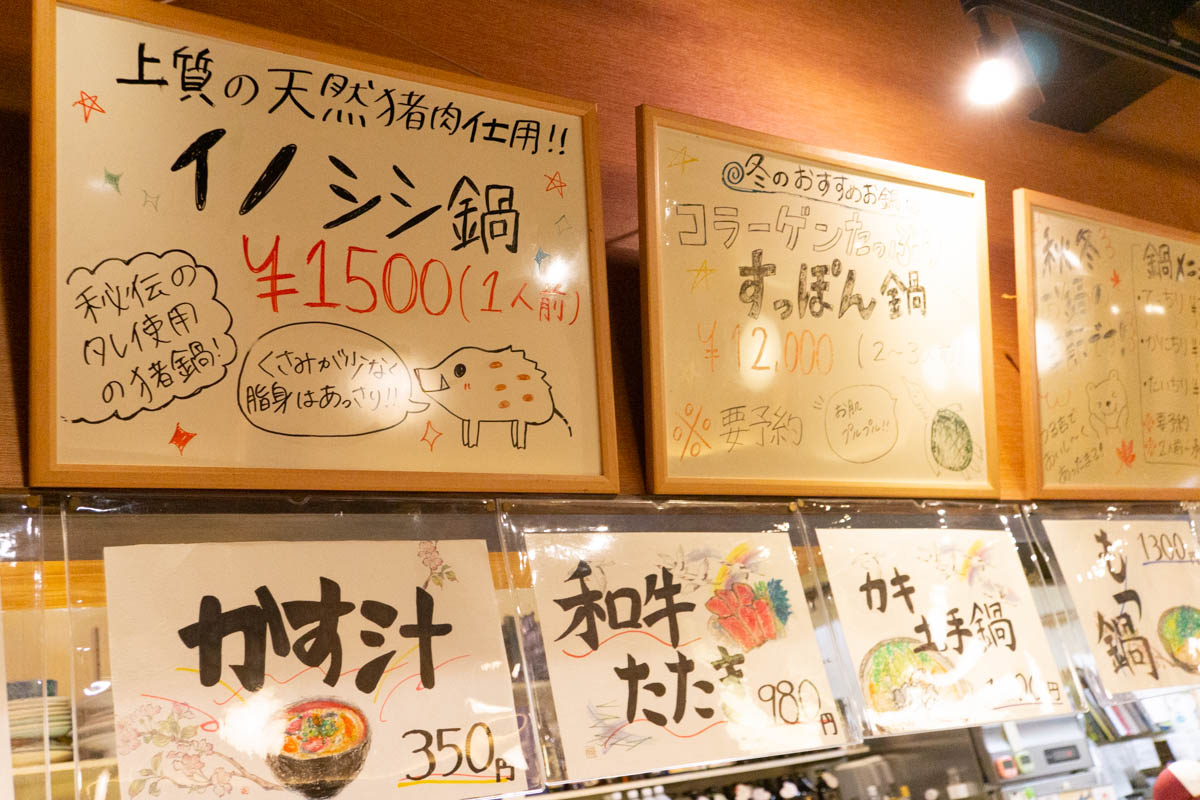 上質の天然猪肉仕用!!
イノシシ鍋
¥1500(1人前)
秘伝の
タレ使用
の猪鍋!
くさみが少なく
脂身はあっさり!!
冬のおすすめお鍋
コラーゲンたっぷり
すっぽん鍋
¥12,000
※要予約
お肌
プルプル!!
秋冬
鍋メニ
・てっちり
・かにちり
・たいちり
※要予約
かす汁
350円
和牛
たたき
980円
カキ
土手鍋
1300
鍋